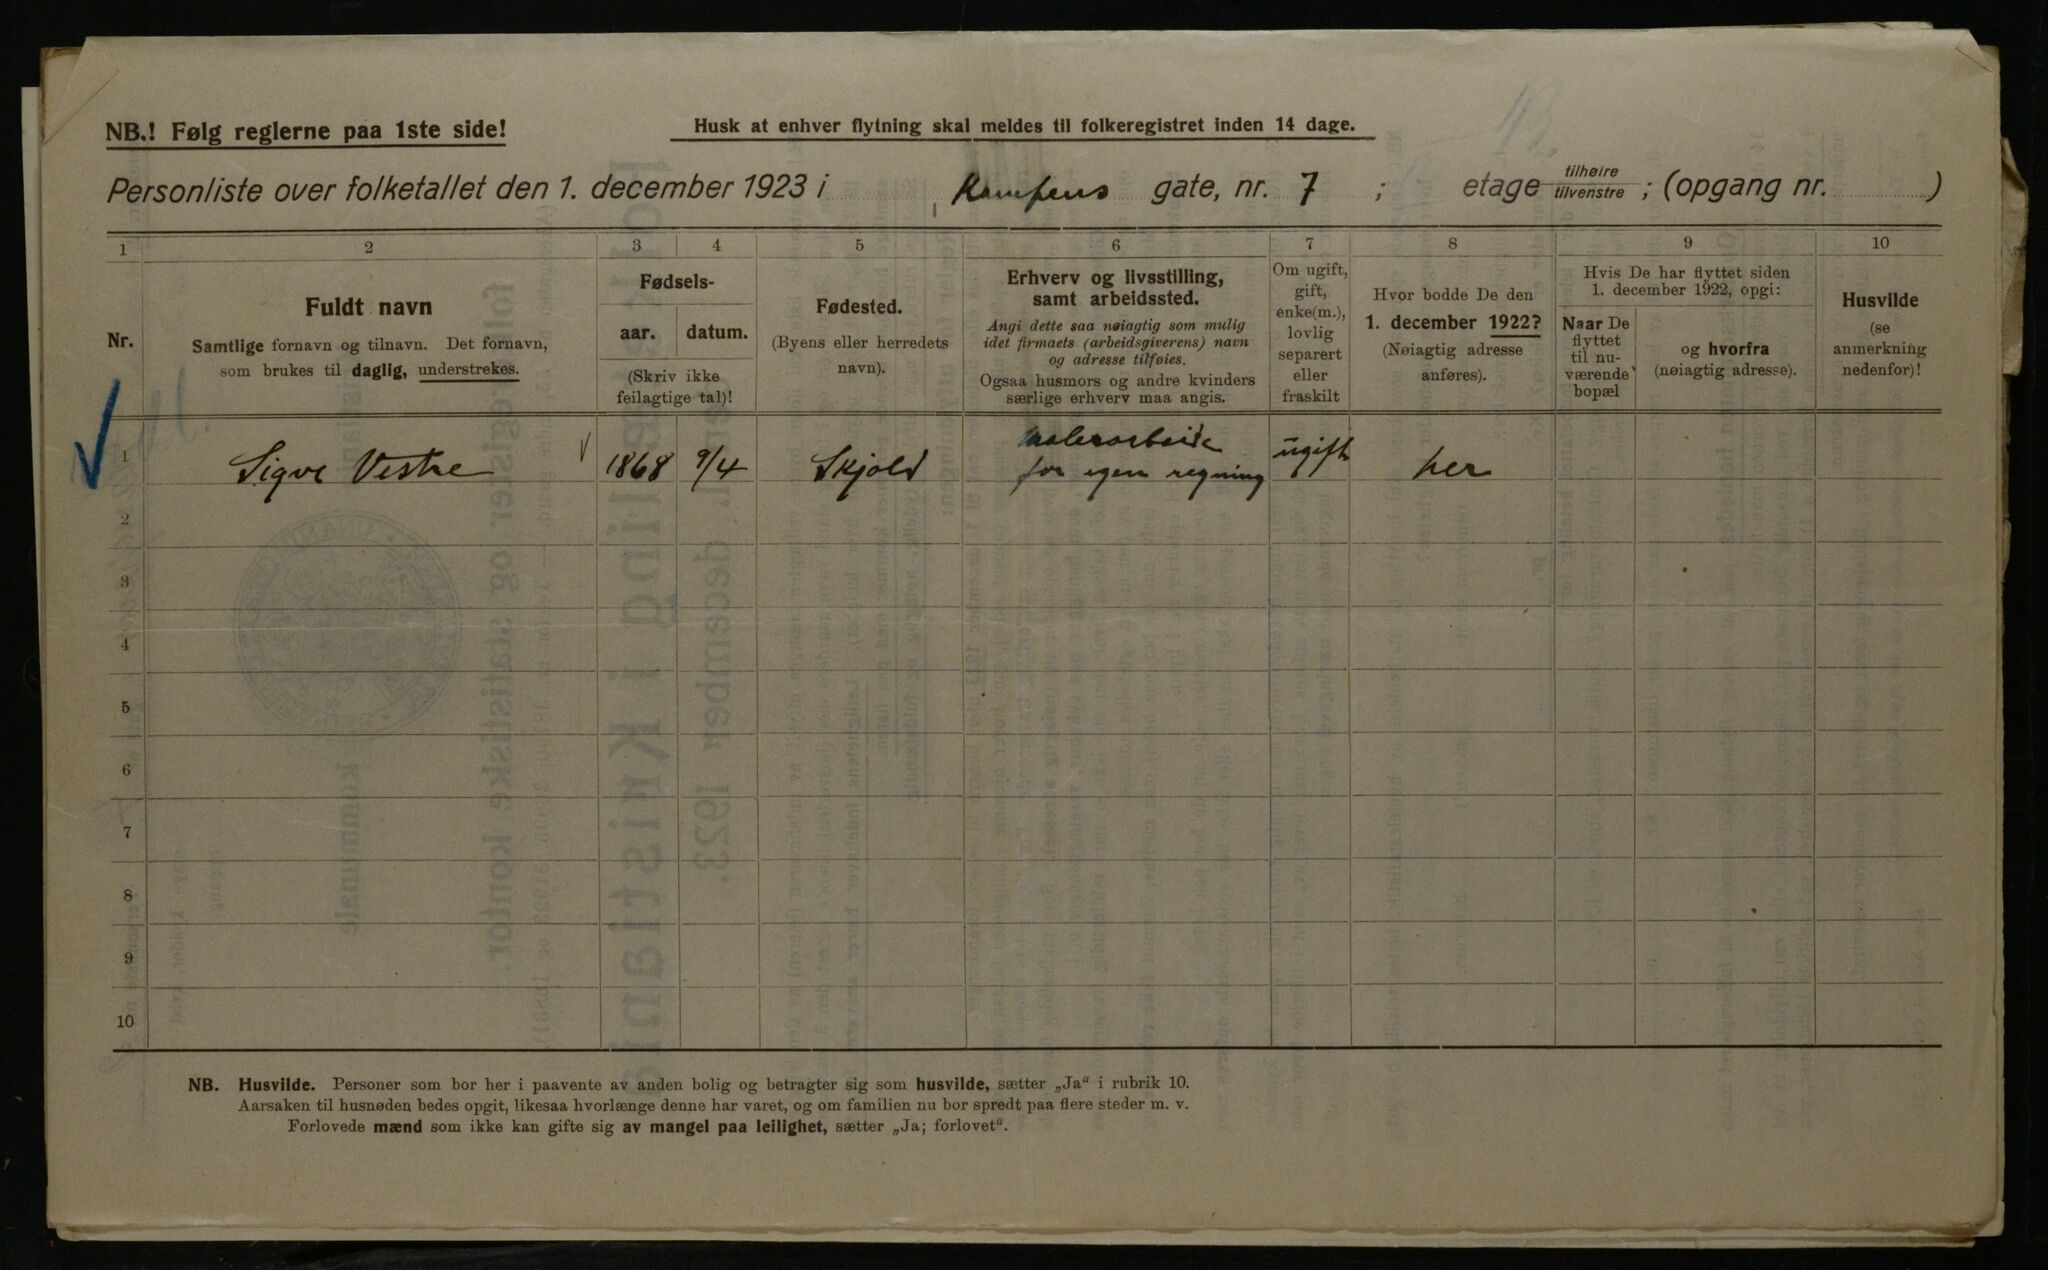 NB.! Følg reglerne paa 1ste side!
Husk at enhver flytning skal meldes til folkeregistret inden 14 dage.
Personliste over folketallet den 1. december 1923 i Kampens gate, nr. 7 ; etage tilhøire tilvenstre ; (opgang nr. )
1 2 3 4 5 6 7 8 9 10
Nr.
Fuldt navn
Samtlige fornavn og tilnavn. Det fornavn,
som brukes til daglig, understrekes.
Fødsels-
aar. datum.
(Skriv ikke
feilagtige tal)!
Fødested.
(Byens eller herredets
navn).
Erhverv og livsstilling,
samt arbeidssted.
Angi dette saa nøiagtig som mulig
idet firmaets (arbeidsgiverens) navn
og adresse tilføies.
Ogsaa husmors og andre kvinders
særlige erhverv maa angis.
Om ugift,
gift,
enke(m.),
lovlig
separert
eller
fraskilt
Hvor bodde De den
1. december 1922?
(Nøiagtig adresse
anføres).
Hvis De har flyttet siden
1. december 1922, opgi:
Naar De
flyttet
til nu-
værende
bopæl
og hvorfra
(nøiagtig adresse).
Husvilde
(se
anmerkning
nedenfor)!
1 Sigve Vestre 1868 9/4 Skjold malerarbeide
for egen regning ugift her
2
3
4
5
6
7
8
9
10
NB. Husvilde. Personer som bor her i paavente av anden bolig og betragter sig som husvilde, sætter „Ja“ i rubrik 10.
Aarsaken til husnøden bedes opgit, likesaa hvorlænge denne har varet, og om familien nu bor spredt paa flere steder m. v.
Forlovede mænd som ikke kan gifte sig av mangel paa leilighet, sætter „Ja; forlovet“.